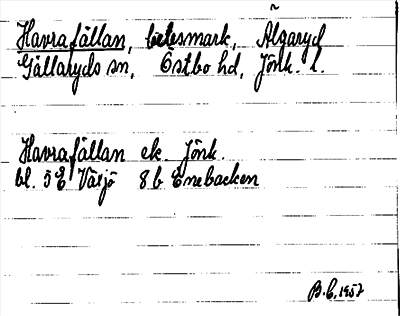 Havrafällan, betesmark, Älgaryd
Gällaryds sn, Östbo hd, Jönk. l.
Havrafällan ek. Jönk.
bl. 5 E Växjö 8 b Enebacken
B.E. 1957